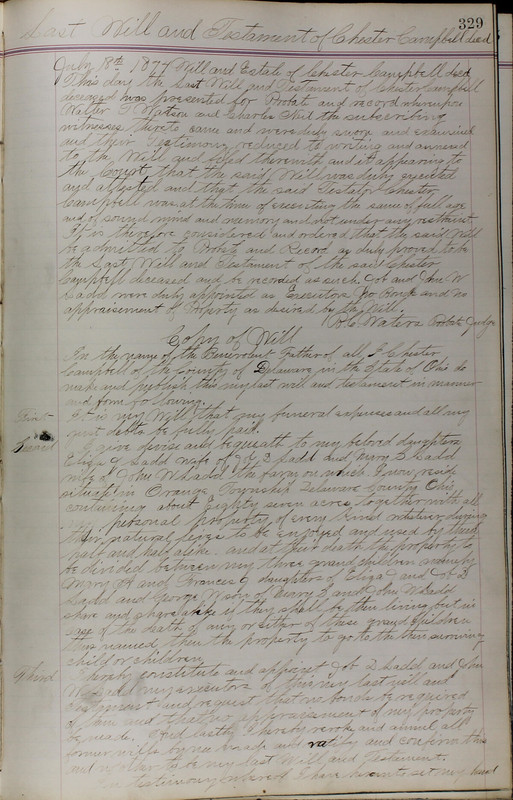 329
Last Will and Testament of Chester Campbell decd
July 18th 1877 Will and Estate of Chester Campbell decd
This day the Last Will and Testament of Chester Campbell
deceased was presented for Probate and record whereupon
Walter Watson and Charles the subscribing
witnesses thereto came and were duly sworn and examined
and their Testimony reduced to writing and annexed
to the Will and filed therewith and it appearing to
the Court that the said Will was duly executed
and attested and that the said Testator Chester
Campbell was at the time of executing the same of full age
and of sound mind and memory and not under any restraint
It is therefore considered and ordered that the said Will
be admitted to Probate and Record as duly proved to be
the Last Will and Testament of the said Chester
Campbell deceased and be recorded as such. and John W
Ladd were duly appointed as Executors No Bond and no
appraisement of Property as desired by the Will.
Waters Probate Judge
Copy of Will
In the name of the Benevolent Father of all, I Chester
Campbell of the County of Delaware in the State of Ohio do
make and publish this my last will and testament in manner
and form following.
First It is my Will that my funeral expenses and all my
just debts be fully paid.
Second I give devise and bequeath to my beloved daughters
Eliza J Ladd wife of Ladd and Mary Ladd
wife of John W Ladd the farm on which I now reside
situate in Orange Township Delaware County Ohio,
containing about Eighty seven acres, together with all
my personal property of every kind whatever during
their natural lives to be enjoyed and used by them
and at their death the property to
be divided between my three grand children namely
Mary and Frances J daughters of Eliza J and
Ladd and George W son of Mary and John W Ladd
share and share alike if they shall be then living but in
case of the death of any or either of these grand children
thus named, then the property to go to the then surviving
child or children.
Third I hereby constitute and appoint Ladd and John
W Ladd my executors of this my last will and
Testament and request that no bonds be required
of them and that no appraisement of my property
be made. And lastly I hereby revoke and annul all
former wills by me made and ratify and confirm this
and no other to be my last Will and Testament.
In testimony whereof I have hereunto set my hand